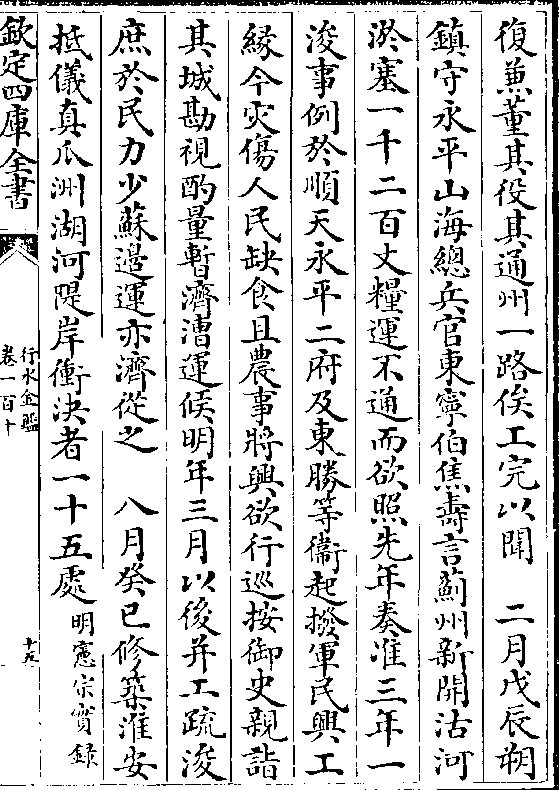 復兼董其役其通州一路俟工完以聞　二月戊辰朔
鎮守永平山海總兵官東寧伯焦壽言薊州新開沽河
淤塞一千二百丈糧運不通而欲照先年奏准三年一
浚事例於順天永平二府及東勝等衞起撥軍民興工
縁今灾傷人民缺食且農事將興欲行巡按御史親詣
其城勘視酌量暫濟漕運候明年三月以後并工疏浚
庶於民力少蘇邉運亦濟從之　八月癸巳修築淮安
抵儀真瓜洲湖河隄岸衝決者一十五處明憲宗實錄
欽定四庫全書
行水金鑑
卷一百十
十五